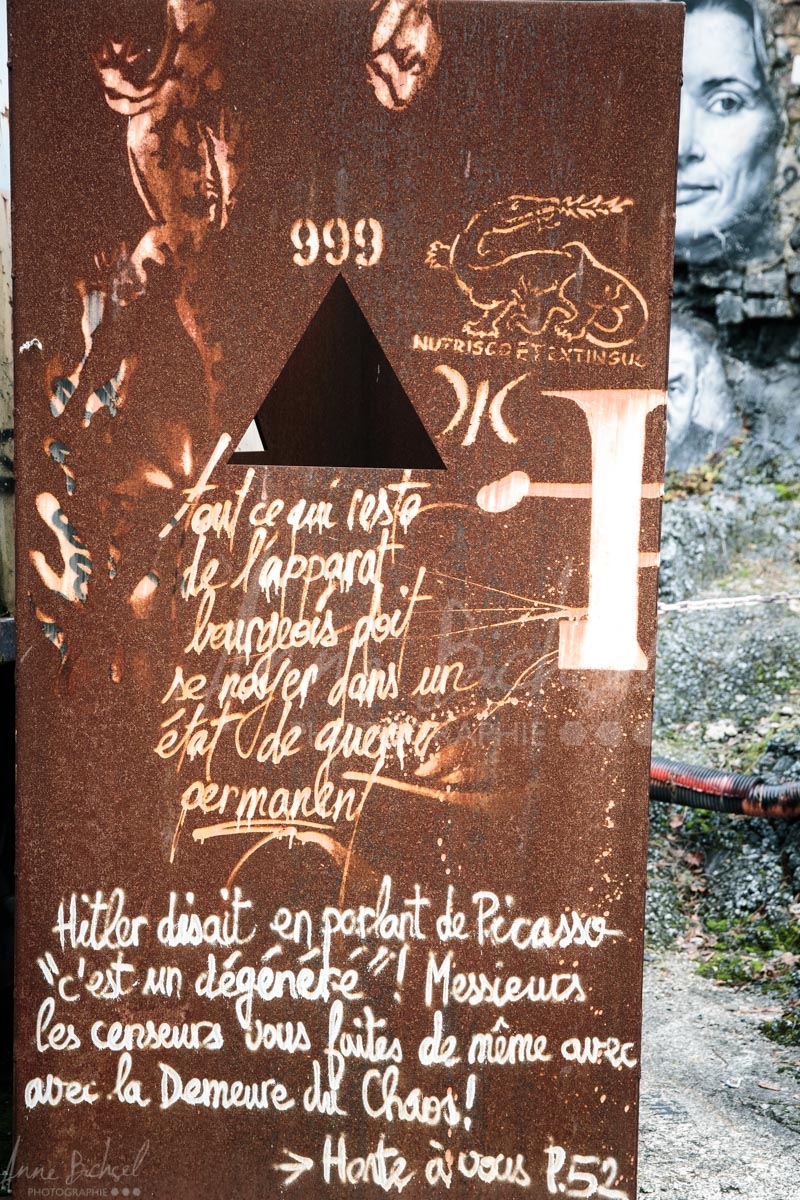 999
NUTRISCO ET EXTINGUO
tout ce qui reste
de l'apparat
bourgeois doit
se noyer dans un
état de guerre
permanent
Hitler disait en parlant de Picasso
"c'est un dégénéré"! Messieurs
les censeurs vous faites de même avec
avec la Demeure du Chaos!
→ Honte à vous P.52
Anne Bichsel
PHOTOGRAPHIE
Anne Bichsel
PHOTOGRAPHIE